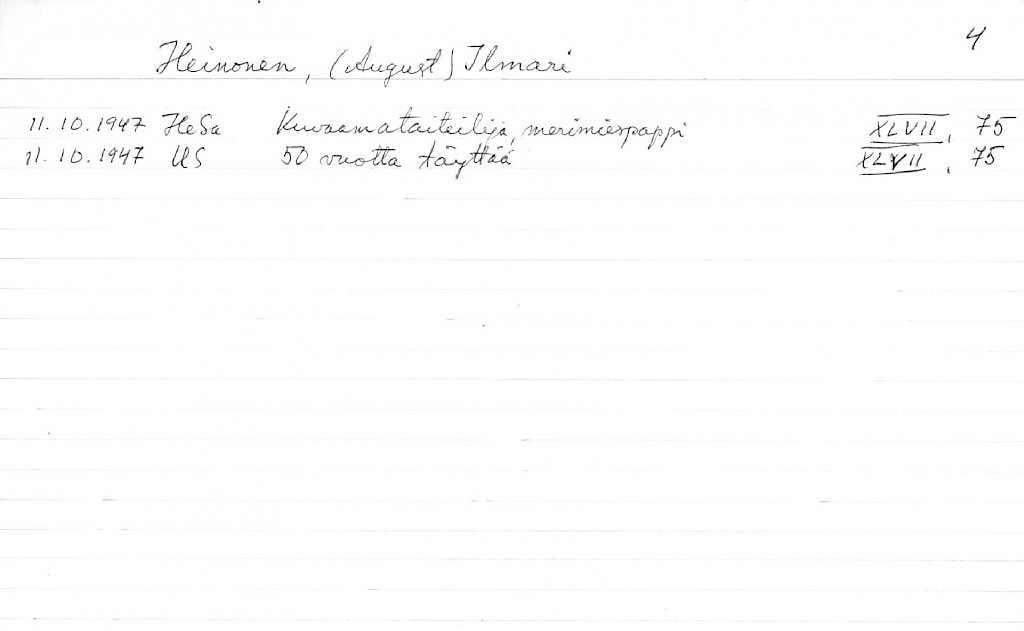 4
Heinonen, (August) Ilmari
11.10.1947 HeSa Kuvaamataiteilija, merimiespappi XLVII, 75
11.10.1947 US 50 vuotta täyttää XLVII, 75